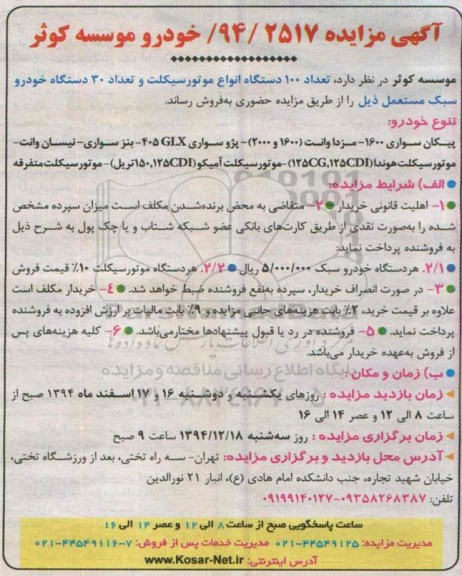 آگهی مزایده ۲۵۱۷ /۹۴/ خودرو موسسه کوثر
موسسه کوثر در نظر دارد، تعداد ۱۰۰ دستگاه انواع موتورسیکلت و تعداد ۳۰ دستگاه خودرو
سبک مستعمل ذیل را از طریق مزایده حضوری به‌فروش رساند.
تنوع خودرو:
پیکان سواری ۱۶۰۰- مزدا وانت (۱۶۰۰ و ۲۰۰۰)- پژو سواری ۴۰۵ GLX- بنز سواری- نیسان وانت-
موتورسیکلت هوندا(125CG,125CDI)-موتورسیکلت آمیکو (125CDI,۱۵۰تریل)-موتورسیکلت متفرقه
الف) شرایط مزایده:
۱- اهلیت قانونی خریدار ۲- متقاضی به محض برنده‌شدن مکلف است میزان سپرده مشخص
شده را به‌صورت نقدی از طریق کارت‌های بانکی عضو شبکه شتاب و یا چک پول به شرح ذیل
به فروشنده پرداخت نماید:
۲/۱. هردستگاه خودرو سبک ۵/۰۰۰/۰۰۰ ریال ۲/۲. هردستگاه موتورسیکلت ۱۰٪ قیمت فروش
۳- در صورت انصراف خریدار، سپرده به‌نفع فروشنده ضبط خواهد شد. ۴- خریدار مکلف است
علاوه بر قیمت خرید، ۲٪ بابت هزینه‌های جانبی مزایده و ۹٪ بابت مالیات بر ارزش افزوده به فروشنده
پرداخت نماید. ۵- فروشنده در رد یا قبول پیشنهادها مختار می‌باشد. ۶- کلیه هزینه‌های پس
از فروش به‌عهده خریدار می‌باشد.
پایگاه اطلاع رسانی مناقصه و مزایده
ب) زمان و مکان:
زمان بازدید مزایده : روزهای یکشنبه و دوشنبه ۱۶ و ۱۷ اسفند ماه ۱۳۹۴ صبح از
ساعت ۸ الی ۱۲ و عصر ۱۴ الی ۱۶
زمان برگزاری مزایده : روز سه‌شنبه ۱۳۹۴/۱۲/۱۸ ساعت ۹ صبح
آدرس محل بازدید و برگزاری مزایده: تهران- سه راه تختی، بعد از ورزشگاه تختی،
خیابان شهید تجاره، جنب دانشکده امام هادی (ع)، انبار ۲۱ نورالدین
تلفن: ۰۹۳۵۸۲۶۸۳۸۷-۰۹۱۹۹۱۴۰۱۲۷
ساعت پاسخگویی صبح از ساعت ۸ الی ۱۲ و عصر ۱۴ الی ۱۶
مدیریت مزایده: ۴۴۵۴۹۱۲۵-۰۲۱ مدیریت خدمات پس از فروش: ۷-۴۴۵۴۹۱۱۶-۰۲۱
آدرس اینترنتی: www.Kosar-Net.ir